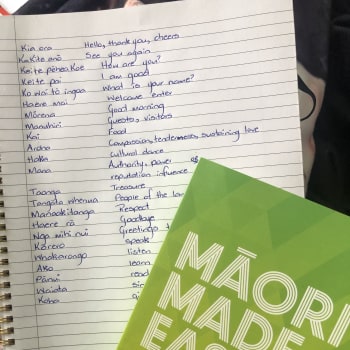 Kia ora Hello, thank you, cheers
KaKite anō See you again
Kei te pēhea Koe How are you?
Kei te pai I am good
Ko wai tō ingoa What is your name?
Haere mai Welcome enter
Mōrena Good morning
Manuhiri Guests, visitors
Kai Food
Aroha Compassion, tenderness, sustaining love
Haka cultural dance
Mana Authority, power
reputation influence
Taonga Treasure
Tangata whenua People of the
Manaakitanga Respect
Haere rā Goodbye
Nga mihi nui Greetings
Kōrero speak
Whakarongo listen
Ako learn
Pānui read
Waiata
Koha
MĀORI
MADE
EAS